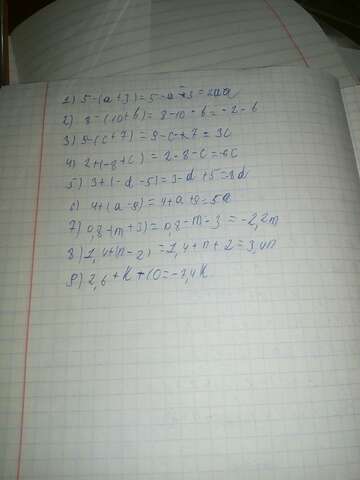 1) 5-(a+3)=5-a-3=2a
2) 8-(10+b)=8-10-b=-2-b
3) 9-(c+7)=9-c+7=3c
4) 2+(-8+c)=2-8-c=-6c
5) 3+(-d-5)=3-d+5=8d
6) 4+(a-9)=4+a+9=5a
7) 0,8-(m+3)=0,8-m-3=-2,2m
8) 1,4+(n-2)=1,4+n+2=3,4n
9) 2,6+k+10=-7,4k